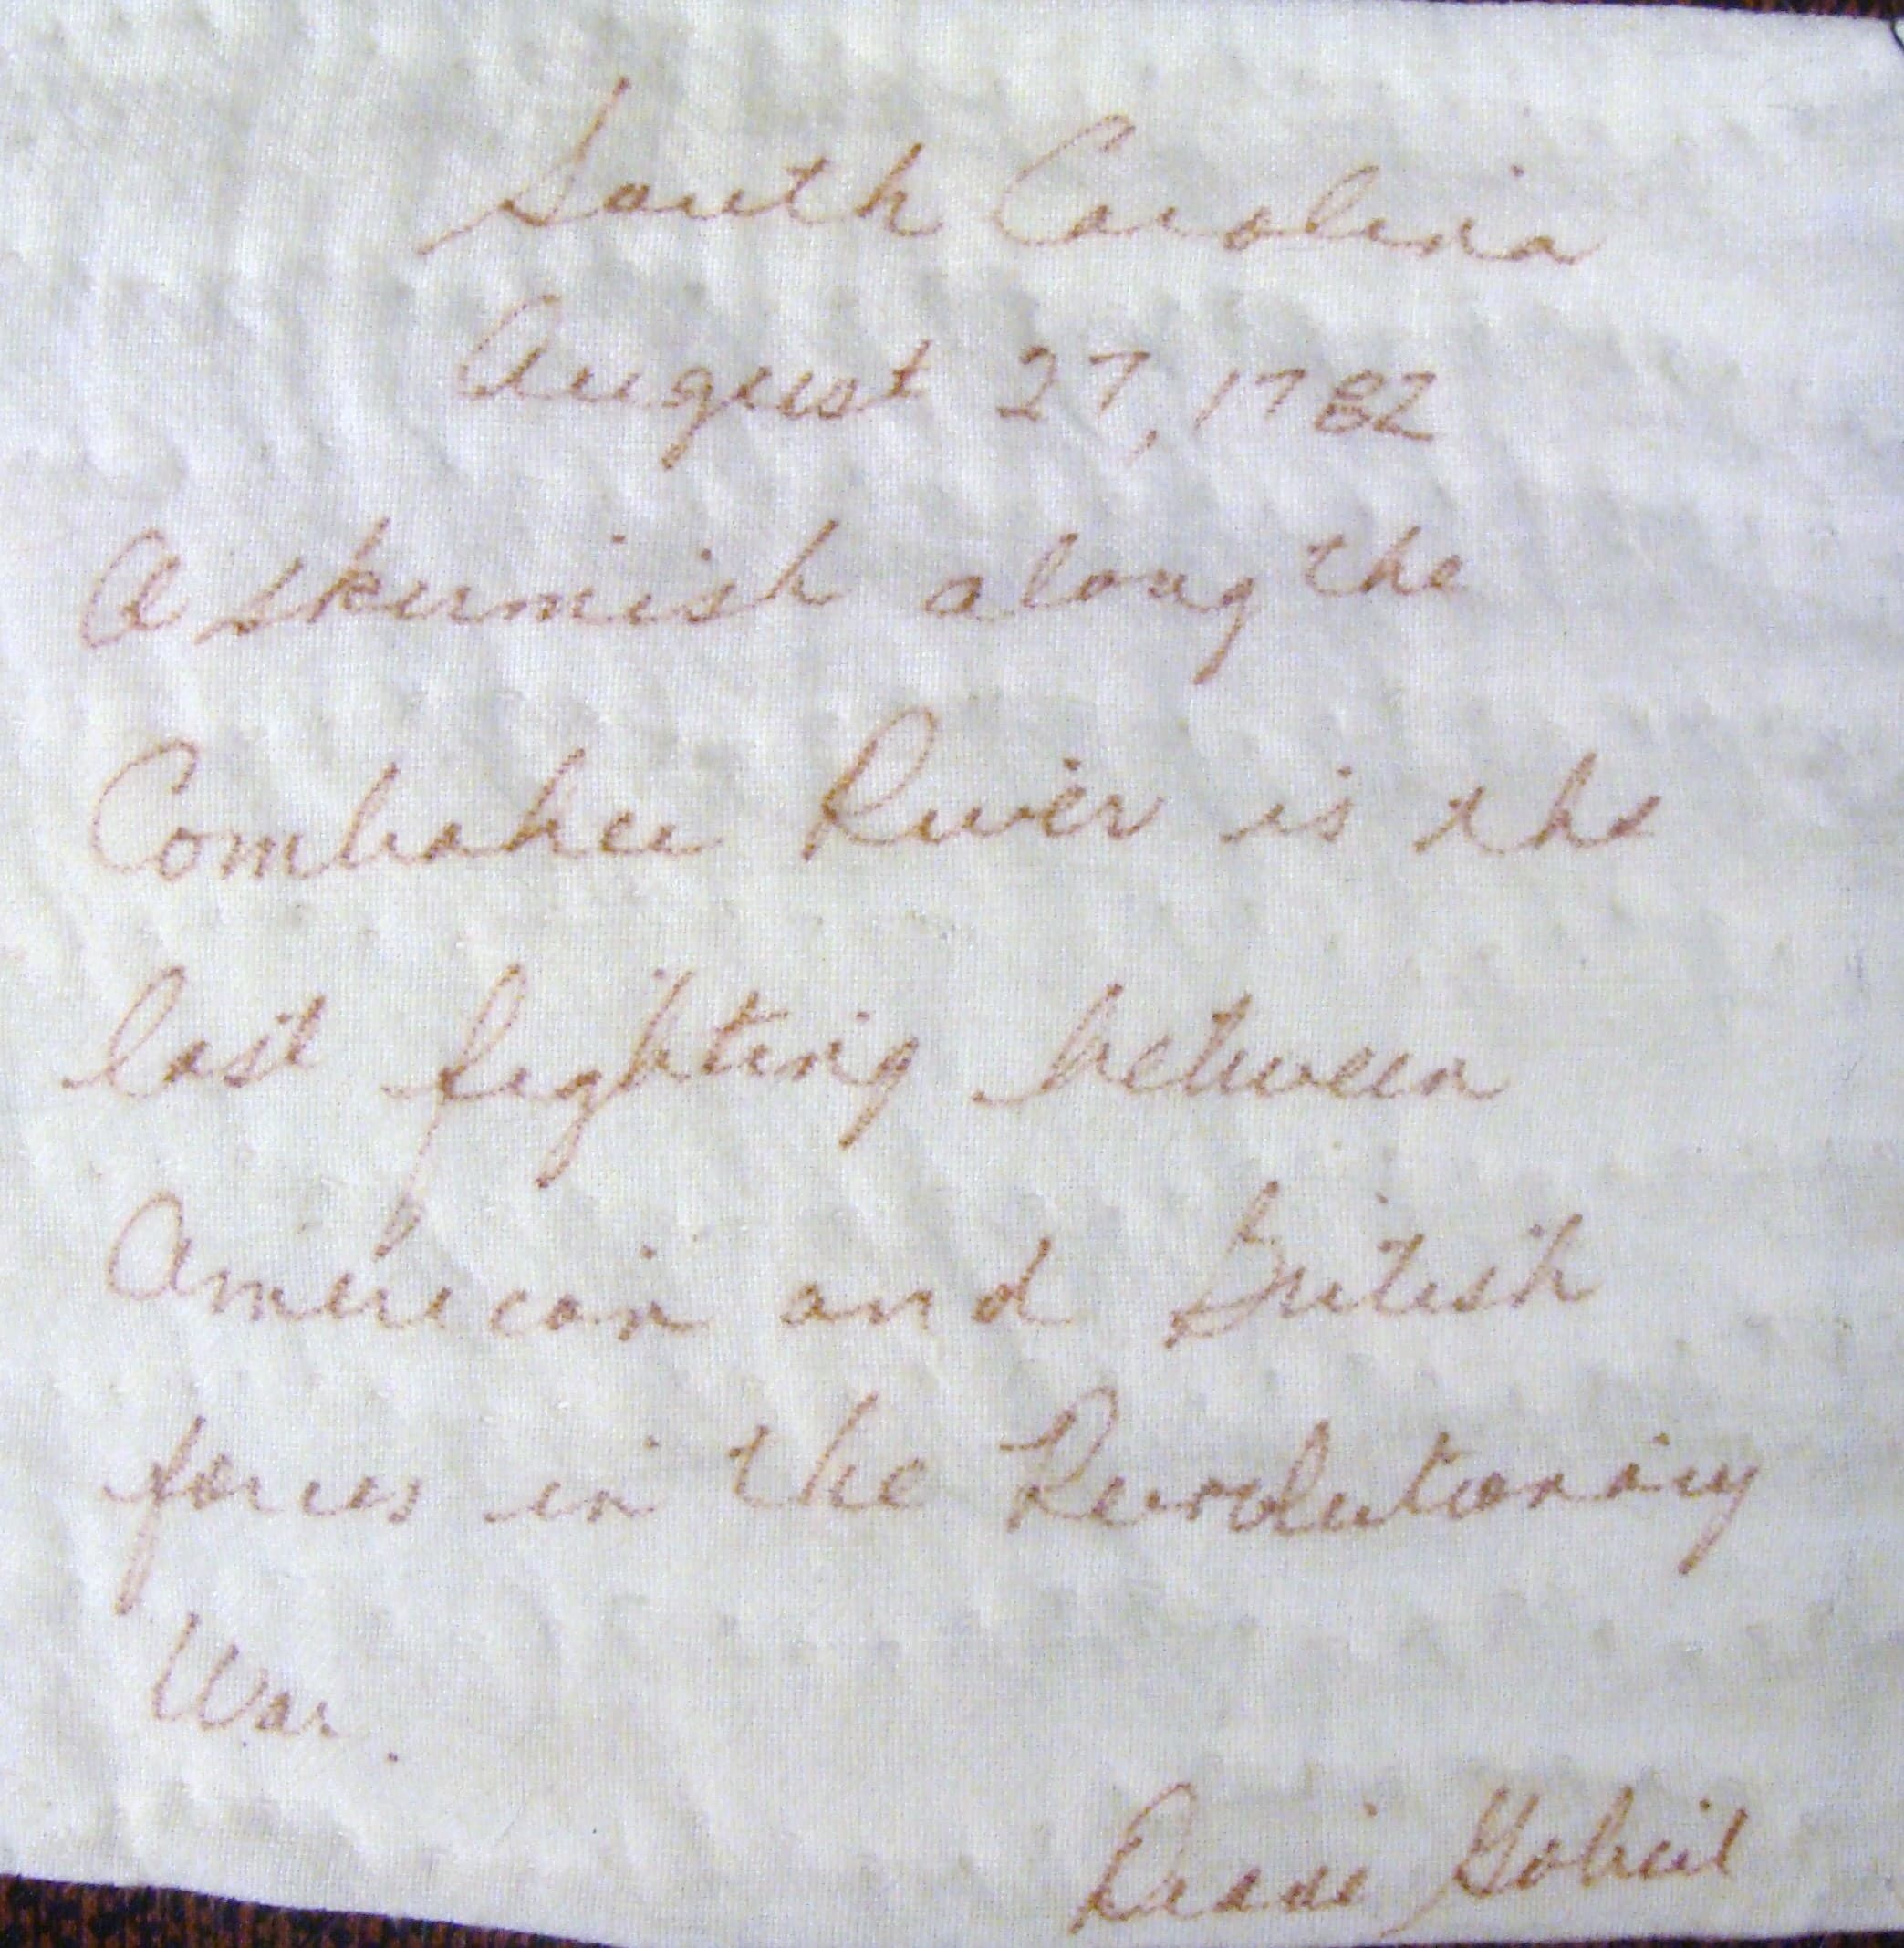 South Carolina
August 27, 1782
A skirmish along the
Combahee River is the
last fighting between
American and British
forces in the Revolutionary
War.
Gobeil